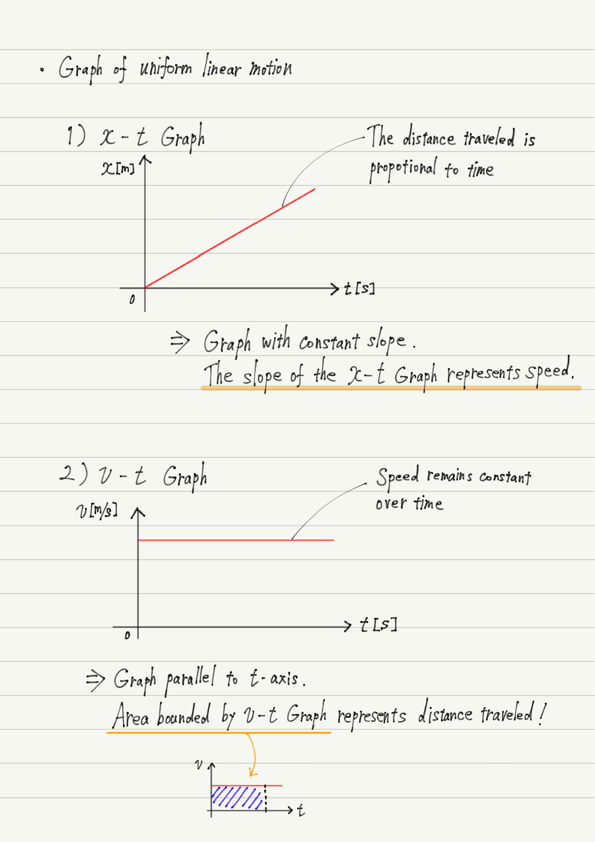 • Graph of uniform linear motion
1) x-t Graph
The distance traveled is
propotional to time
x[m]
0
t[s]
⇒ Graph with constant slope.
The slope of the x-t Graph represents speed.
2) v-t Graph
Speed remains constant
over time
v[m/s]
0
t[s]
⇒ Graph parallel to t-axis.
Area bounded by v-t Graph represents distance traveled!
v
t